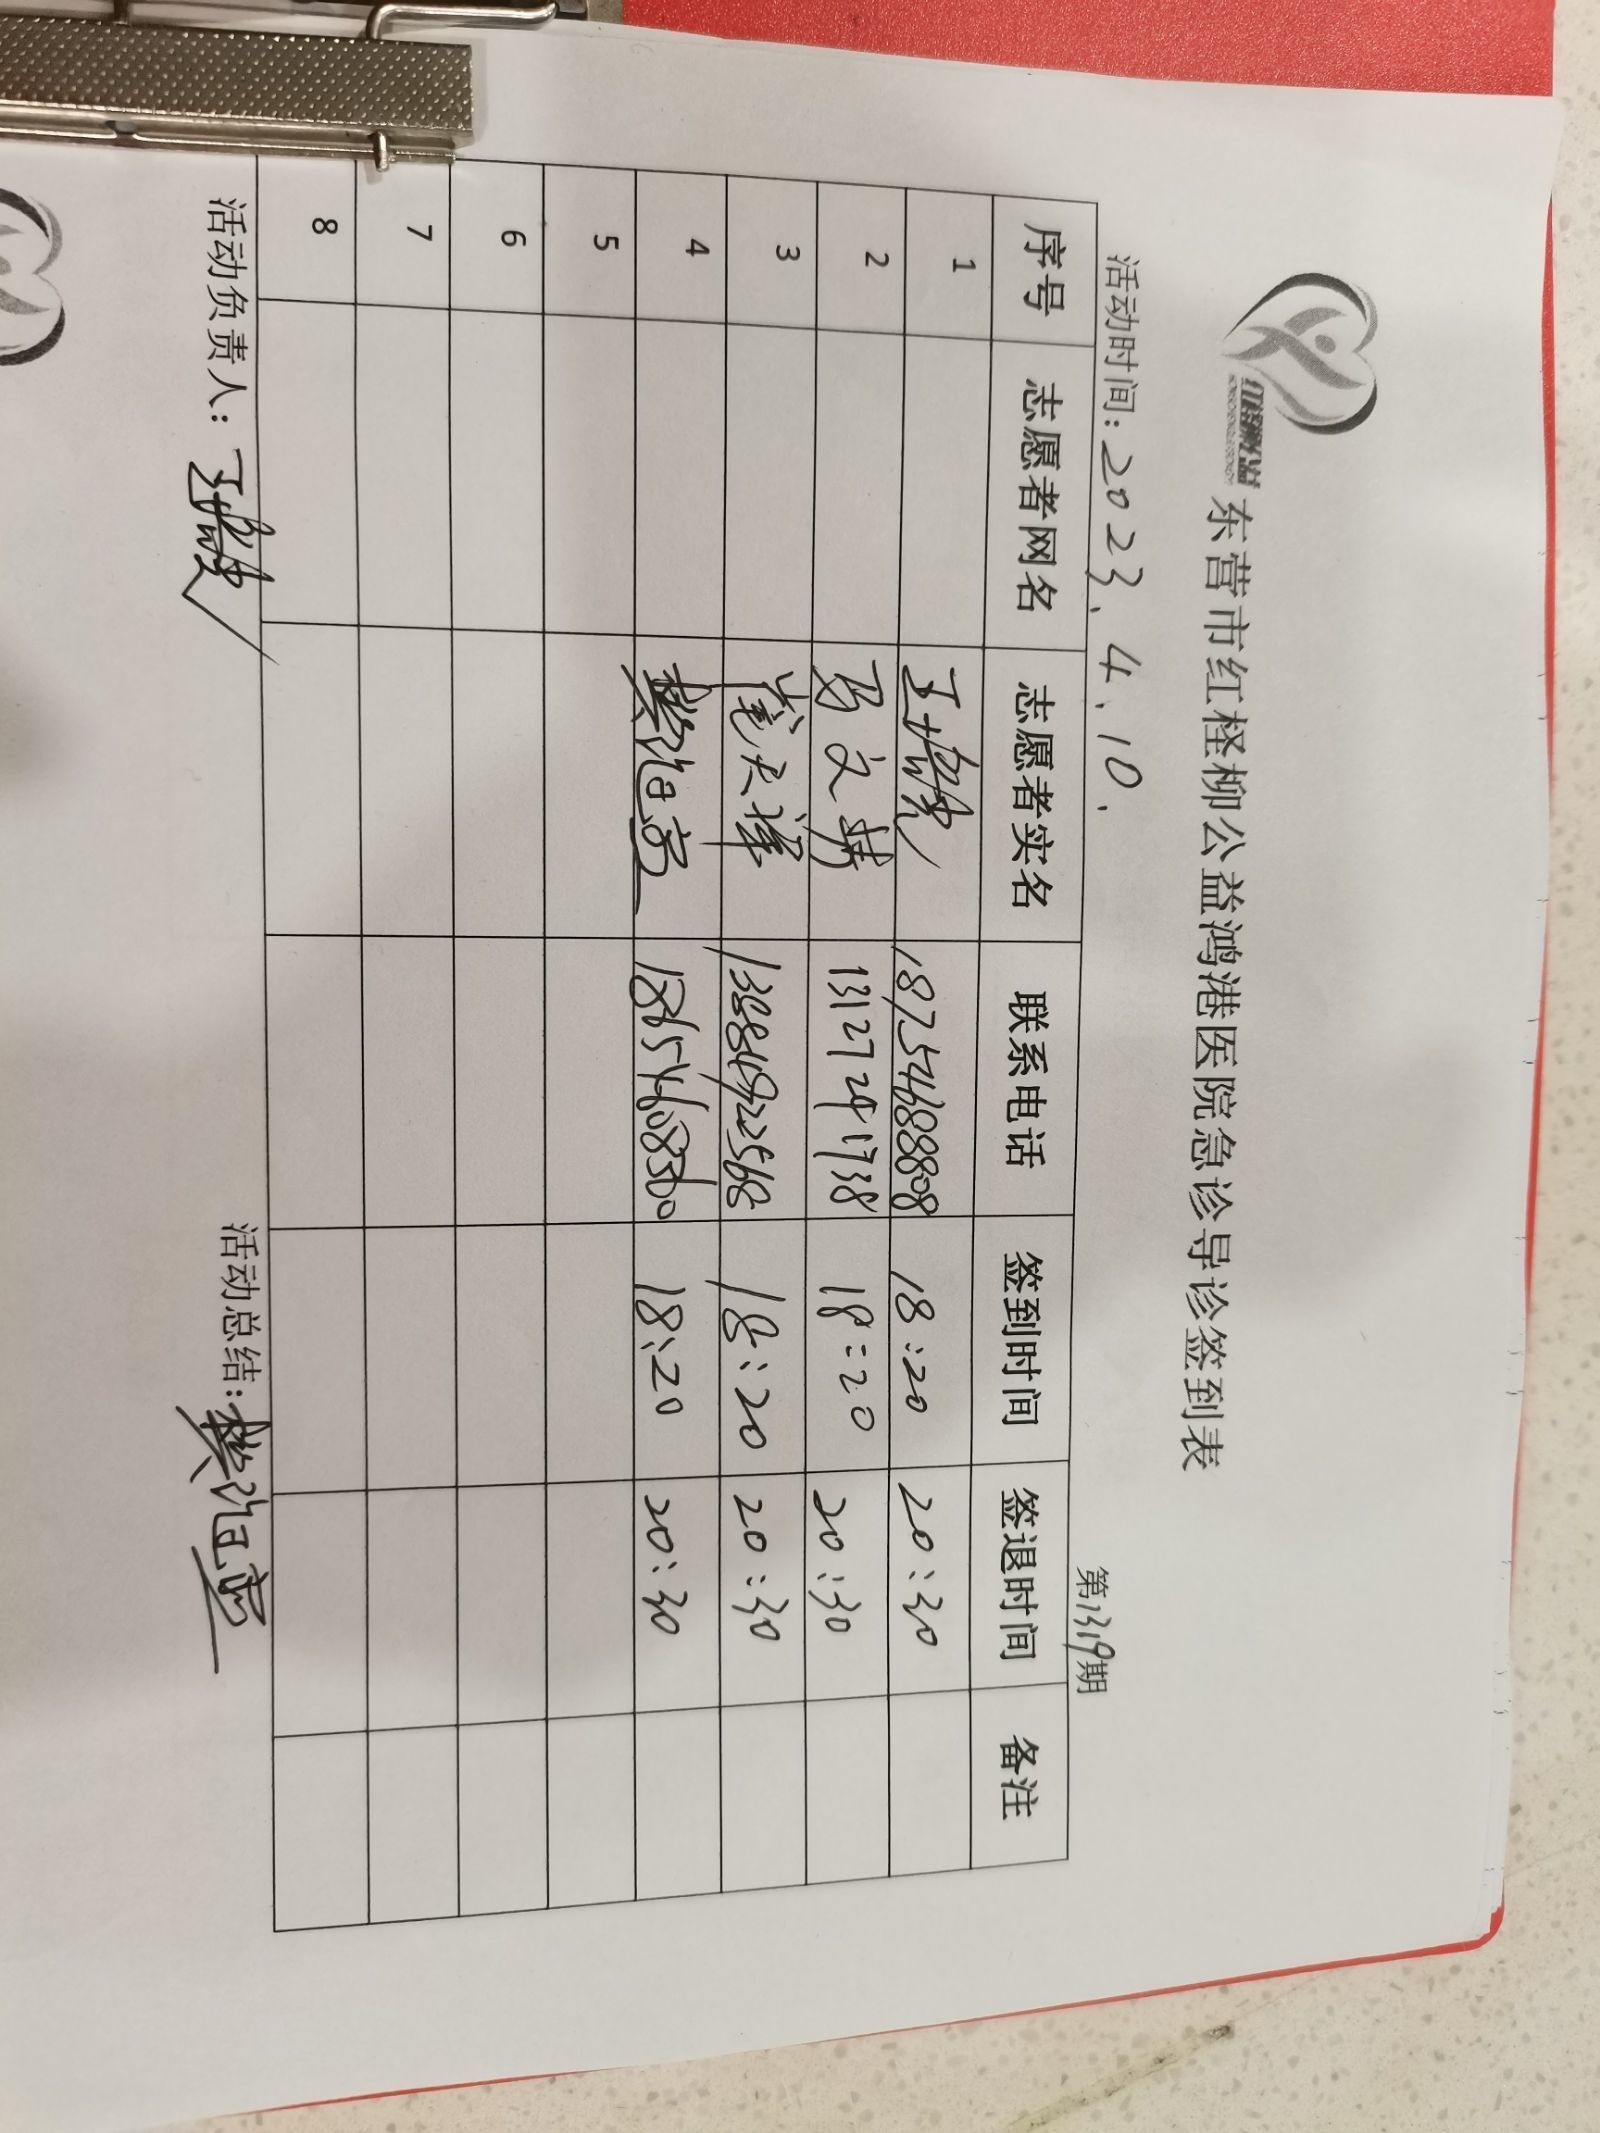 红柽柳公益
东营市红柽柳公益鸿港医院急诊导诊签到表
活动时间：2023.4.10. 第1319期
序号 志愿者网名 志愿者实名 联系电话 签到时间 签退时间 备注
1 18754688808 18:20 20:30
2 马文 13127291738 18:20 20:30
3 崔天泽 18:20 20:30
4 樊治亮 18654608360 18:20 20:30
5
6
7
8
活动负责人： 活动总结：樊治亮